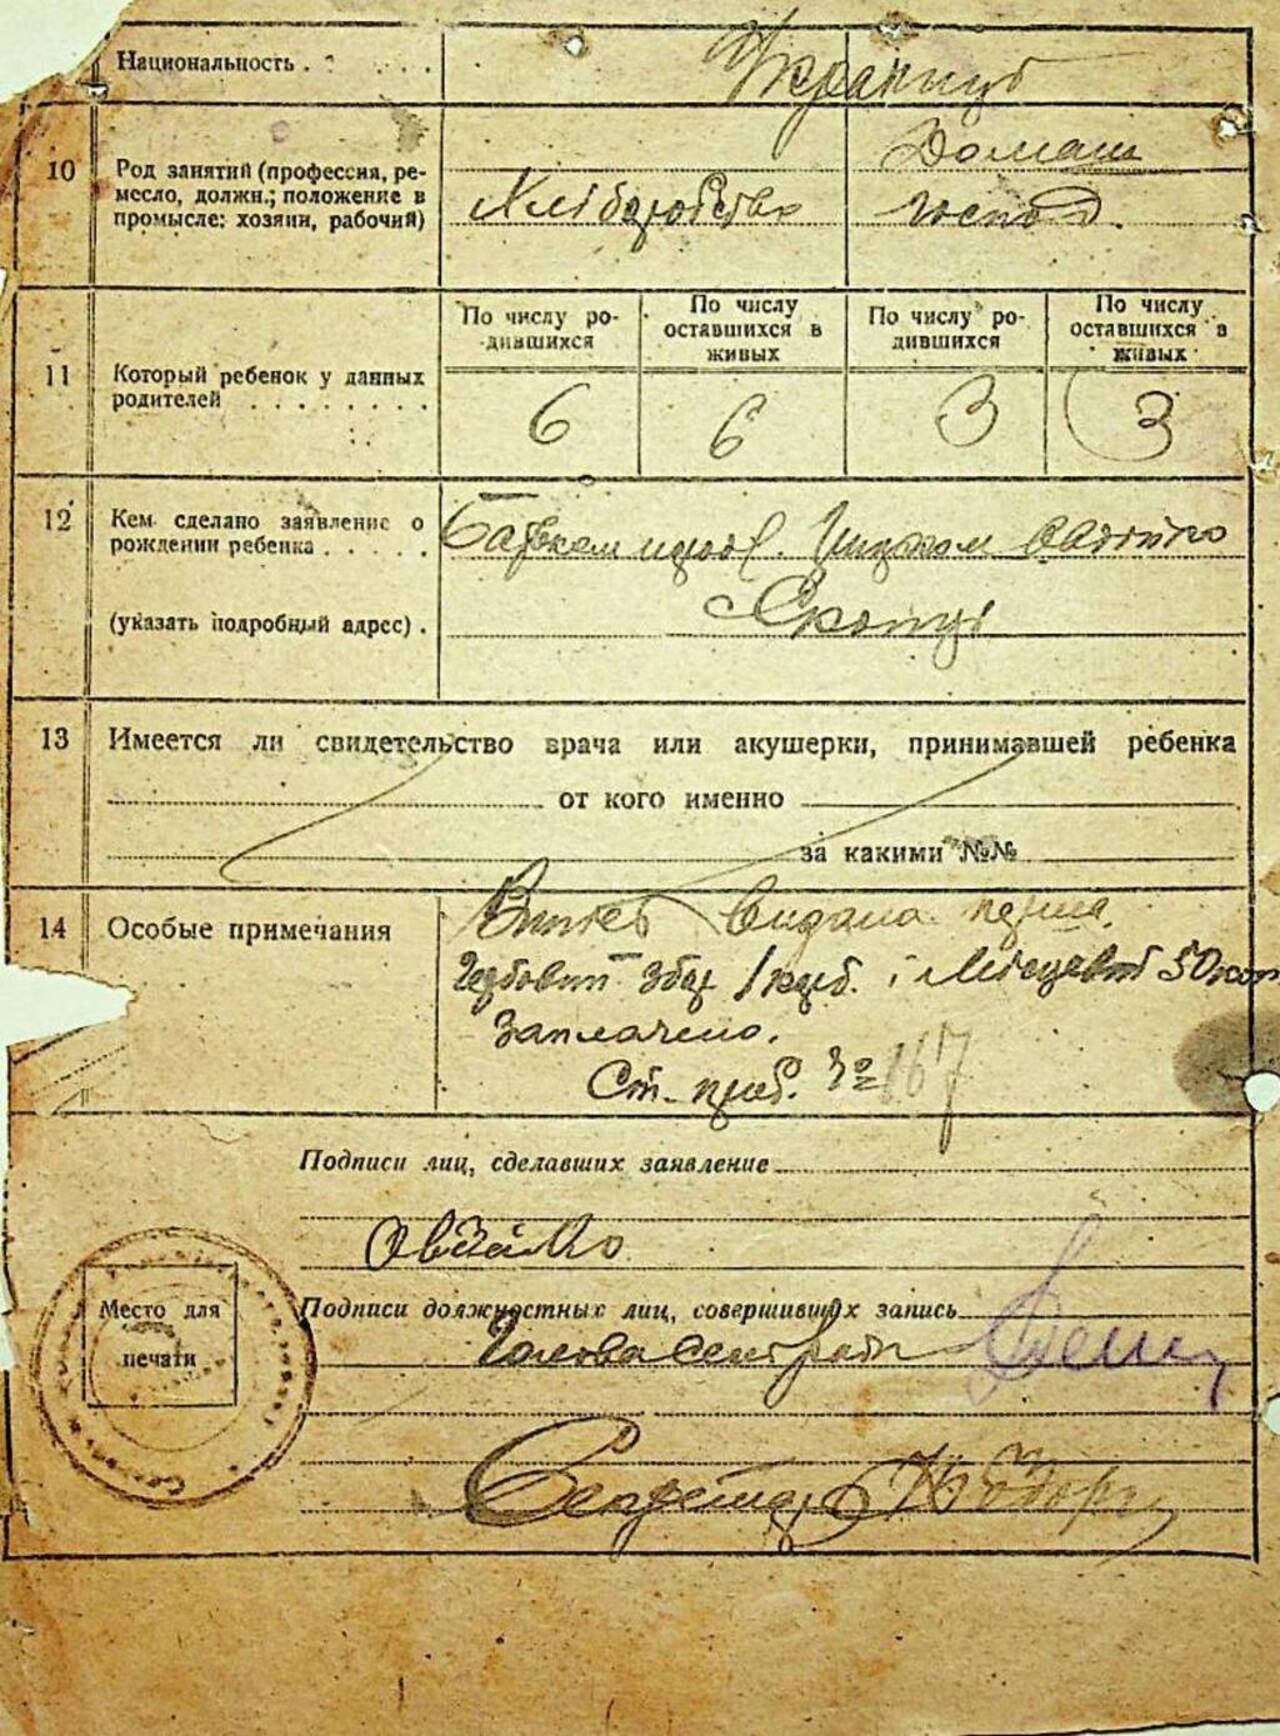 Национальность . . . . .
Українці
10
Род занятий (профессия, ре-
месло, должн.; положение в
промысле: хозяин, рабочий)
Хліборобство
Домаш
господ.
11
Который ребенок у данных
родителей . . . . . . . .
По числу ро-
дившихся
По числу
оставшихся в
живых
По числу ро-
дившихся
По числу
оставшихся в
живых
6
6
3
3
12
Кем сделано заявление о
рождении ребенка . . . . .
(указать подробный адрес) .
Батьком
13
Имеется ли свидетельство врача или акушерки, принимавшей ребенка
от кого именно
за какими №№
14
Особые примечания
Витяг видана перша.
Гербовий збір 1 карб. і Місцевий 50 коп
заплачено.
Ст. приб. № 167
Подписи лиц, сделавших заявление
Подписи должностных лиц, совершивших запись
Голова сельради
Секретар
Место для
печати